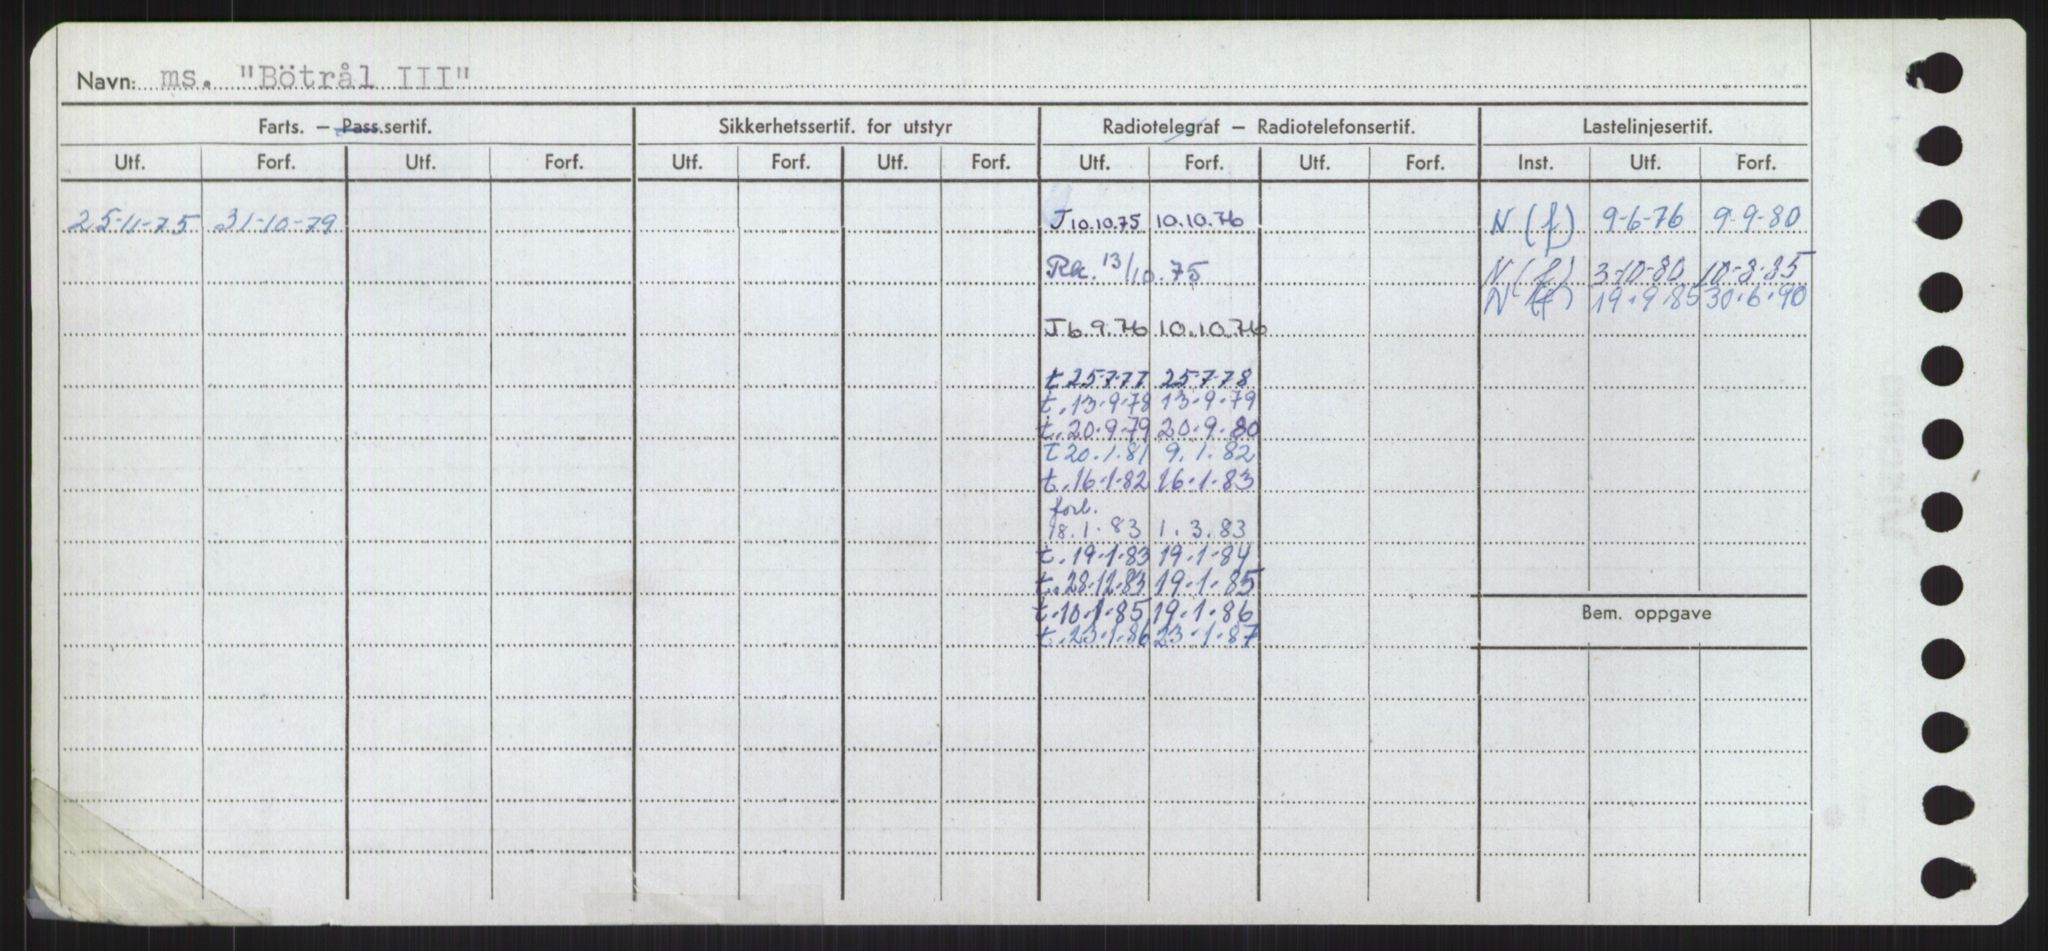 Navn: ms. "Bötrål III"
Farts. – Pass.sertif. Sikkerhetssertif. for utstyr Radiotelegraf – Radiotelefonsertif. Lastelinjesertif.
Utf. Forf. Utf. Forf. Utf. Forf. Utf. Forf. Utf. Forf. Utf. Forf. Inst. Utf. Forf.
25-11-75 31-10-79 J 10.10.75 10.10.76 N (f) 9-6-76 9-9-80
13/10.75 N (f) 3-10-80 10-8-85
N (f) 19.9.85 30.6.90
J 6.9.76 10.10.76
t 25-7-77 25-7-78
t. 13-9-78 13-9-79
t. 20-9-79 20-9-80
T 20.1.81 9.1.82
t. 16-1-82 16-1-83
forl.
18.1.83 1.3.83
t. 19-1-83 19-1-84
t. 28-12-83 19-1-85
t. 10-1-85 19-1-86
t. 23-1-86 23-1-87
Bem. oppgave